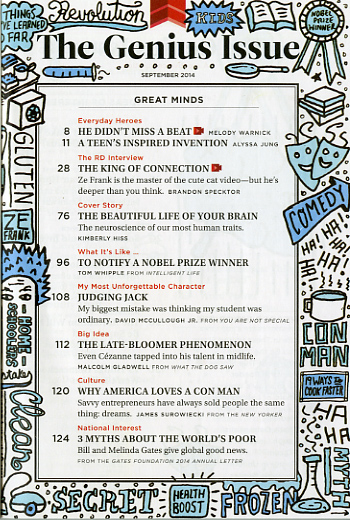 THINGS
I'VE LEARNED
SO FAR
Revolution
KIDS
NOBEL
PRIZE
WINNER
The Genius Issue
SEPTEMBER 2014
GREAT MINDS
Everyday Heroes
8 HE DIDN'T MISS A BEAT MELODY WARNICK
11 A TEEN'S INSPIRED INVENTION ALYSSA JUNG
The RD Interview
28 THE KING OF CONNECTION
Ze Frank is the master of the cute cat video—but he's
deeper than you think. BRANDON SPECKTOR
Cover Story
76 THE BEAUTIFUL LIFE OF YOUR BRAIN
The neuroscience of our most human traits.
KIMBERLY HISS
What It's Like ...
96 TO NOTIFY A NOBEL PRIZE WINNER
TOM WHIPPLE FROM INTELLIGENT LIFE
My Most Unforgettable Character
108 JUDGING JACK
My biggest mistake was thinking my student was
ordinary. DAVID MCCULLOUGH JR. FROM YOU ARE NOT SPECIAL
Big Idea
112 THE LATE-BLOOMER PHENOMENON
Even Cézanne tapped into his talent in midlife.
MALCOLM GLADWELL FROM WHAT THE DOG SAW
Culture
120 WHY AMERICA LOVES A CON MAN
Savvy entrepreneurs have always sold people the same
thing: dreams. JAMES SUROWIECKI FROM THE NEW YORKER
National Interest
124 3 MYTHS ABOUT THE WORLD'S POOR
Bill and Melinda Gates give global good news.
FROM THE GATES FOUNDATION 2014 ANNUAL LETTER
GLUTEN
ZE
FRANK
HOME-
SCHOOLERS
Clean
COMEDY
HA!
HA!
HA!
HA!
CON
MAN
19 WAYS to
COOK FASTER
HA
HA
MYTH
SECRET
HEALTH
BOOST
FROZEN